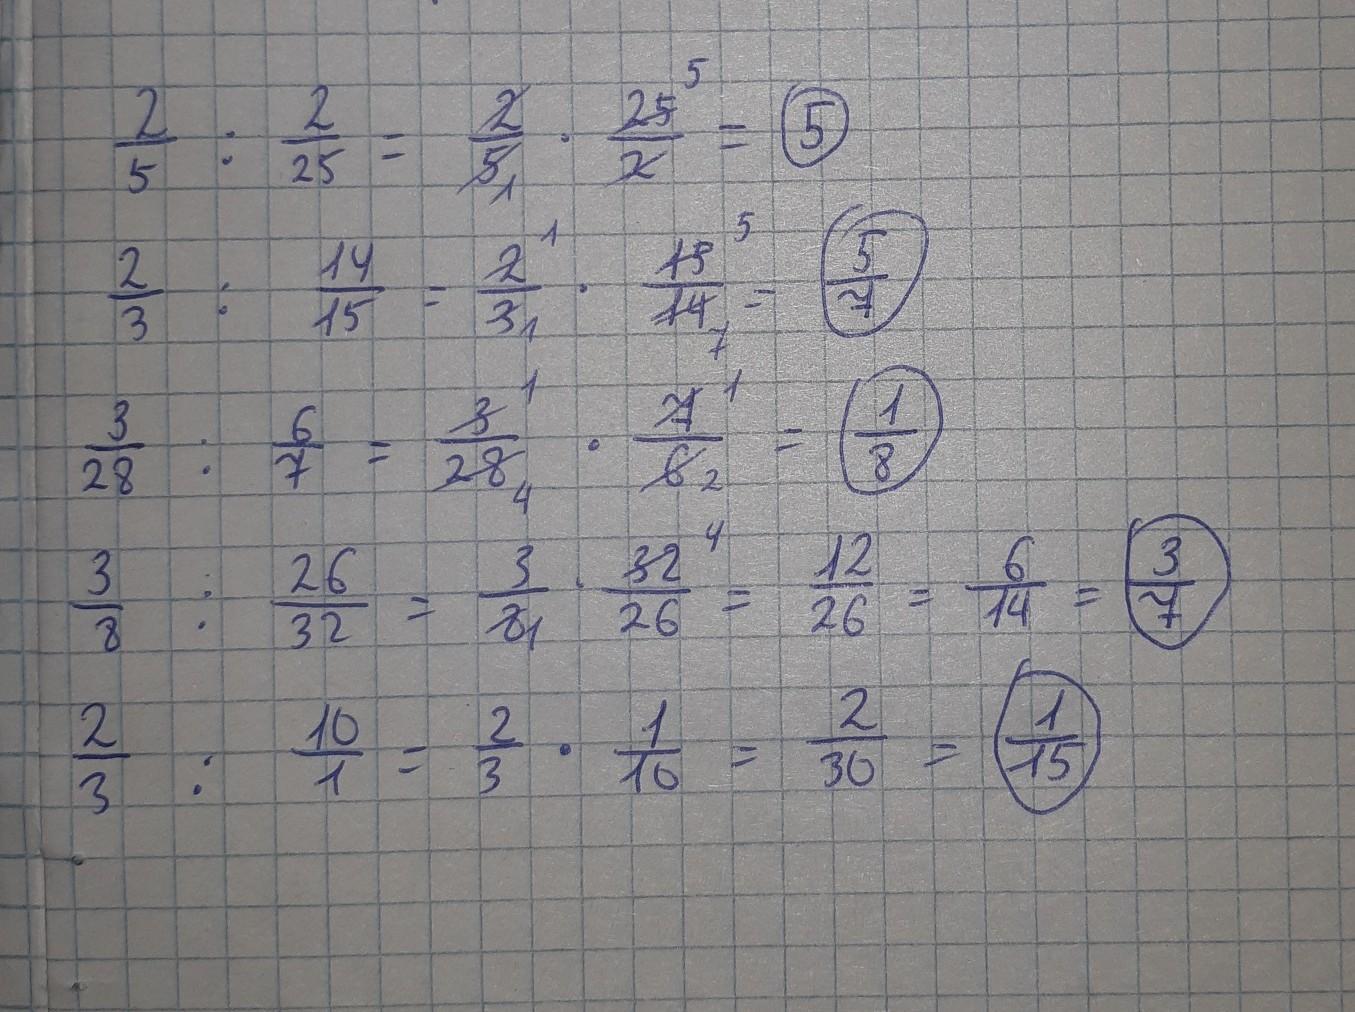 2/5 : 2/25 = 2/5 1 · 25/2 5 = 5
2/3 : 14/15 = 2/3 1 1 · 15/14 5 7 = 5/7
3/28 : 6/7 = 3/28 1 4 · 7/6 1 2 = 1/8
3/8 : 26/32 = 3/8 1 · 32/26 4 = 12/26 = 6/14 = 3/7
2/3 : 10/1 = 2/3 · 1/10 = 2/30 = 1/15